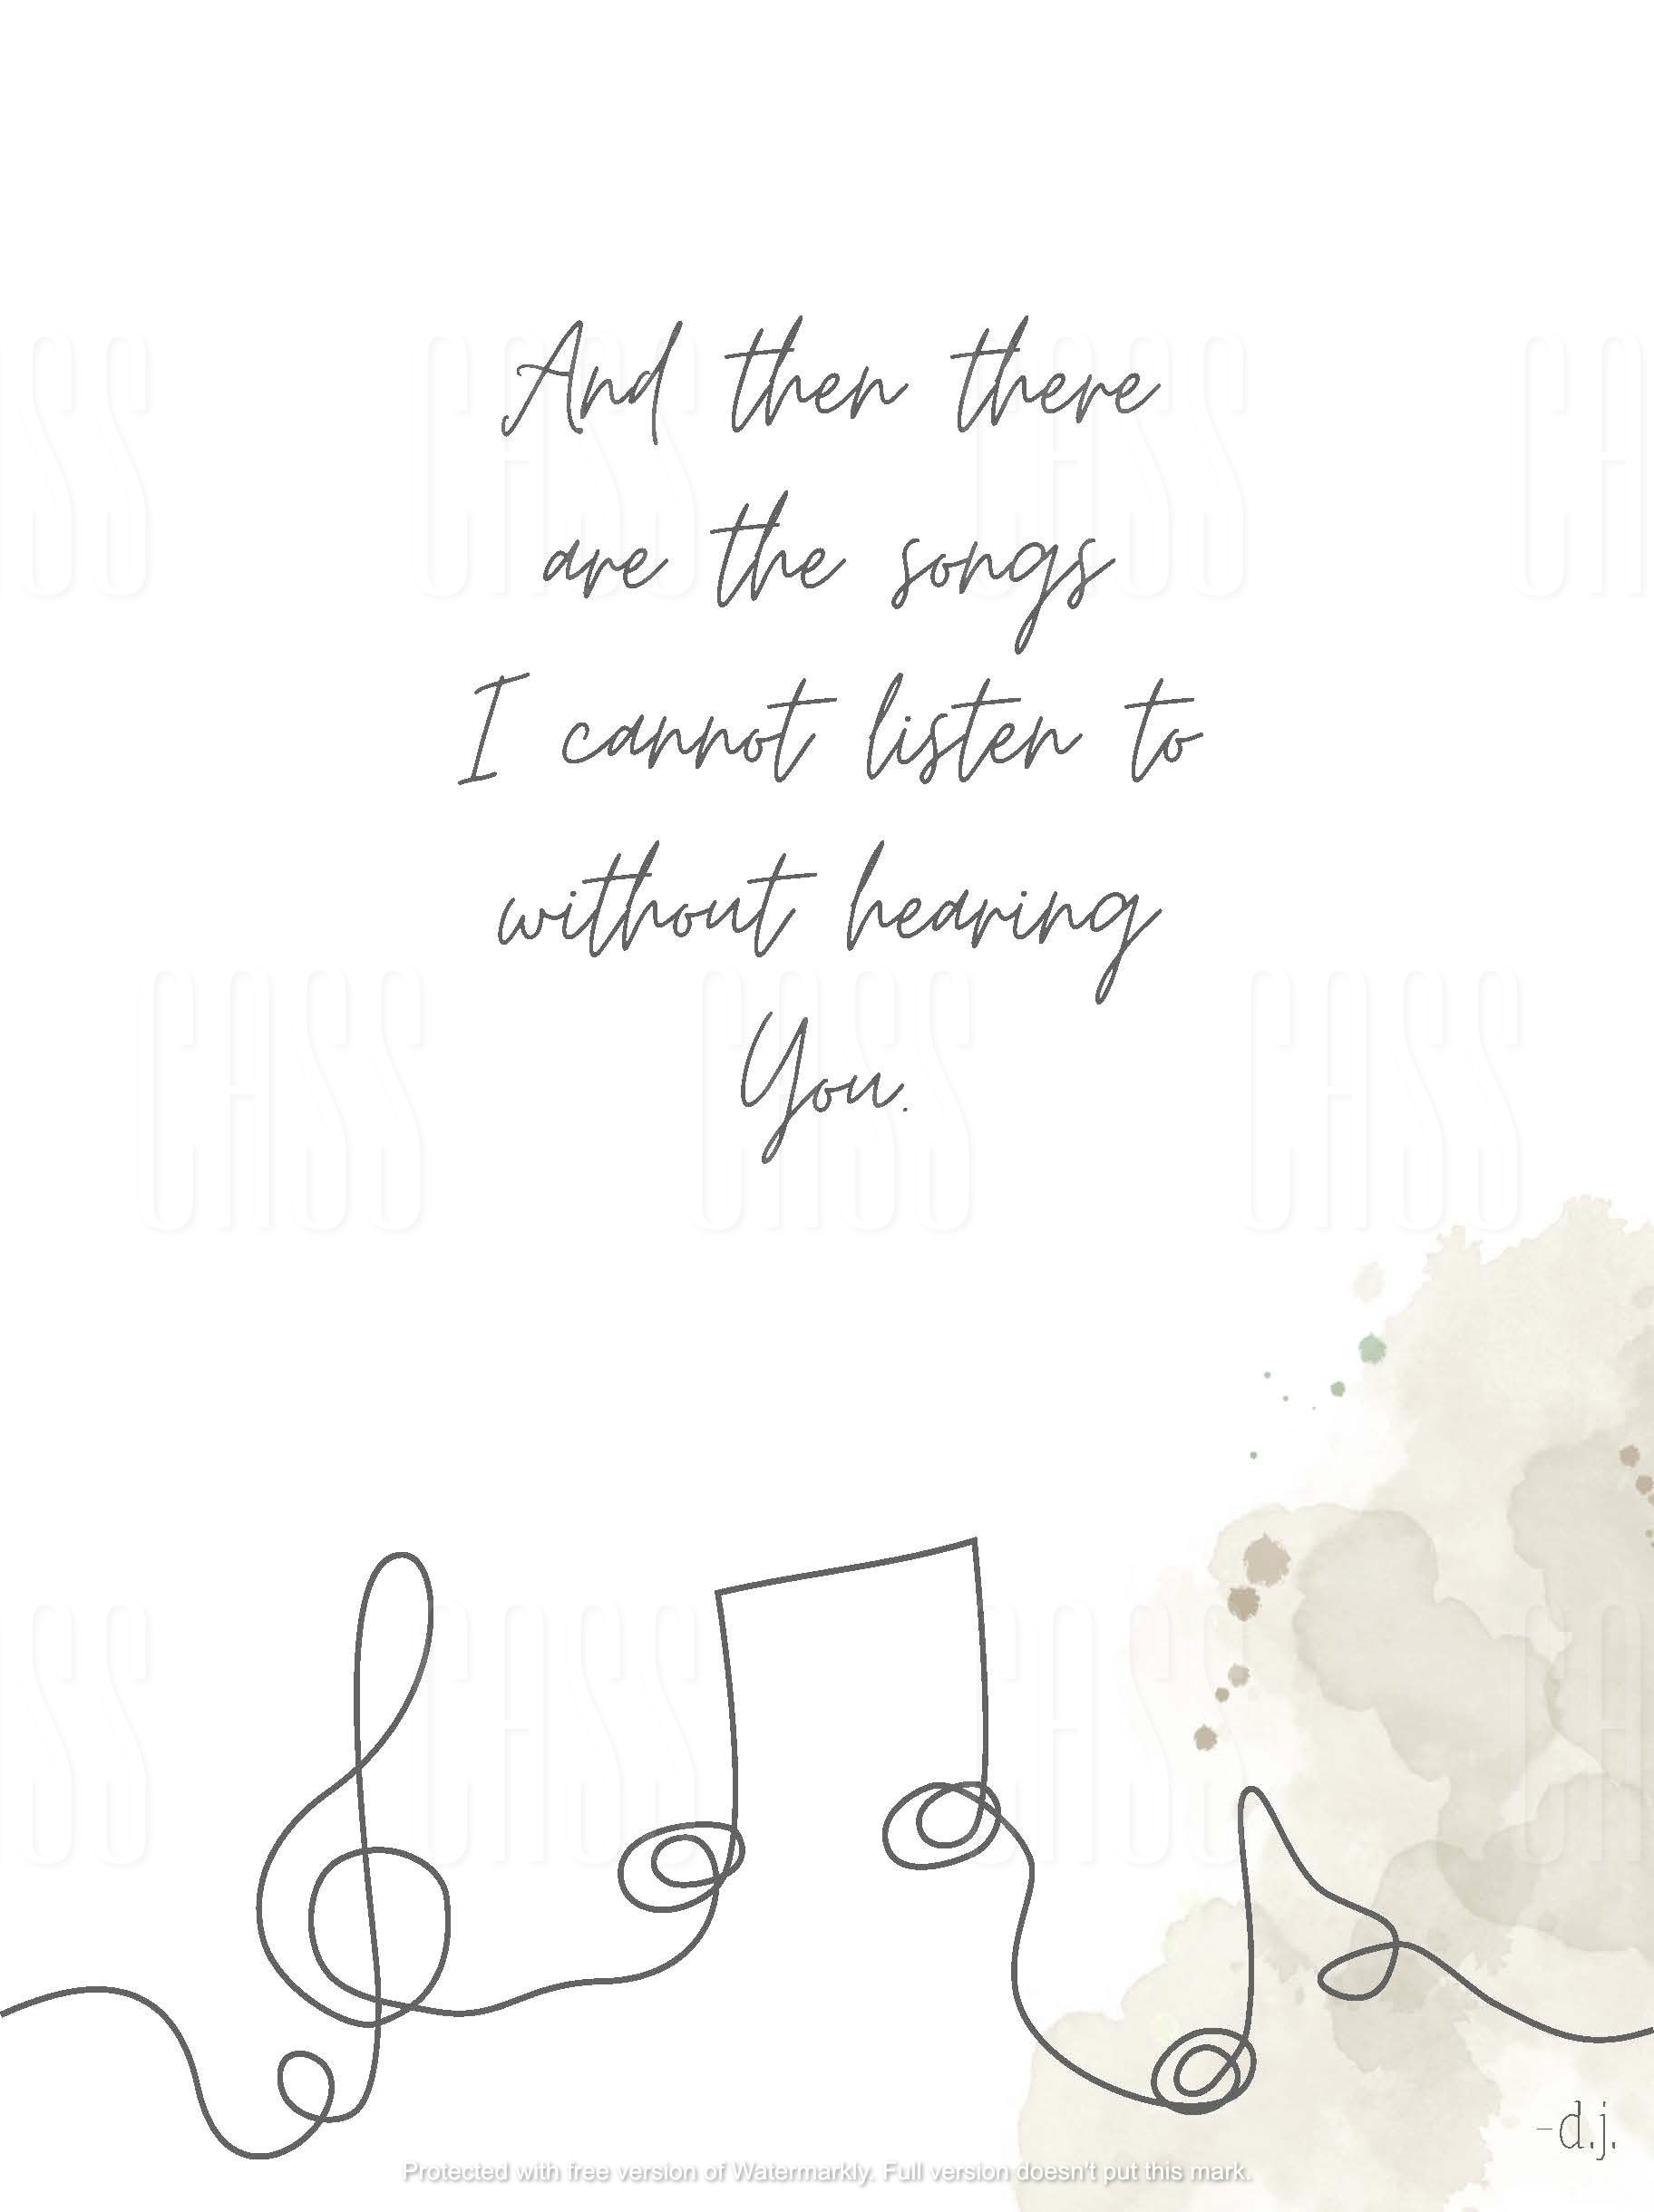 And then there
are the songs
I cannot listen to
without hearing
You.
CASS CASS CASS CASS
CASS CASS CASS
CASS CASS CASS CASS
-d.j.
Protected with free version of Watermarkly. Full version doesn't put this mark.